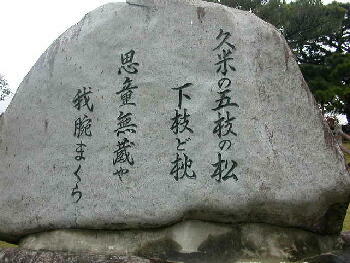 久米の五枝の松
下枝ど枕
思童無蔵や
我腕まくら